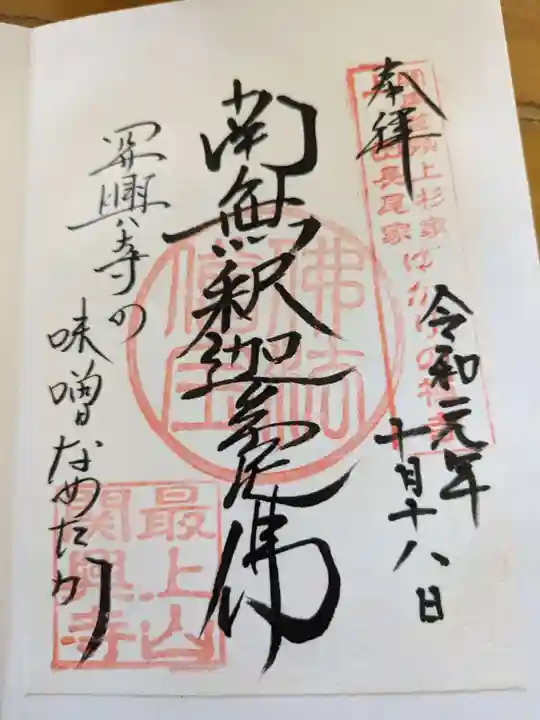 奉拝
上杉家
長尾家ゆかりの
令和元年
十月十八日
南無釈迦牟尼佛
佛法僧宝
関興寺の
味噌なめたか
最上山
関興寺